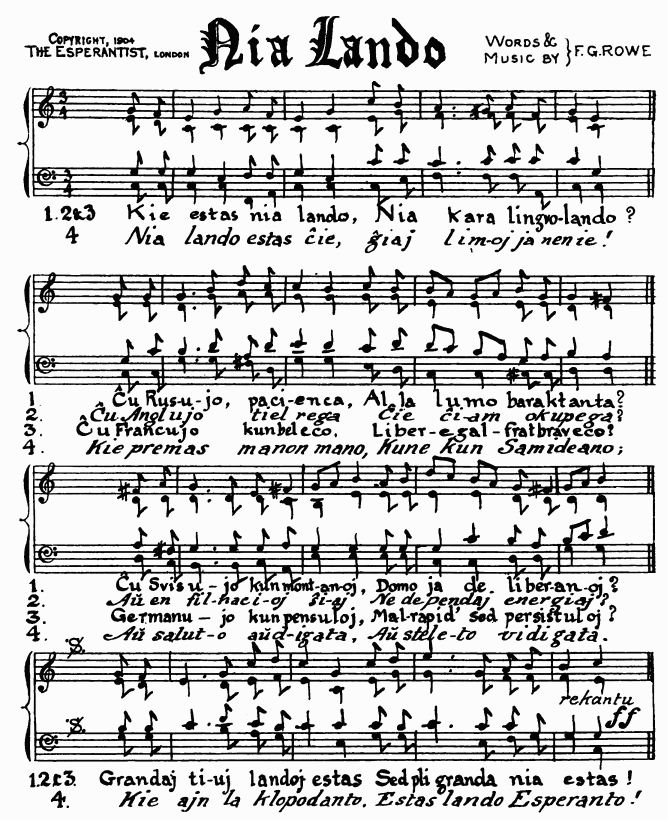 COPYRIGHT, 1904
THE ESPERANTIST, LONDON
Nia Lando
WORDS &
MUSIC BY } F. G. ROWE
1.2&3 Kie estas nia lando, Nia kara lingvo-lando?
4 Nia lando estas ĉie, ĝiaj lim-oj ja nenie!
1. Ĉu Rusu-jo, paci-enca, Al la lumo baraktanta?
2. Ĉu Anglujo tiel rega Ĉie ĉi-am okupega?
3. Ĉu Francujo kun beleco. Liber-egal-frat braveco?
4. Kie premas manon mano, Kune kun Samideano;
1. Ĉu Svisu-jo kun mont-an-oj, Domo ja de liber-an-oj?
2. Aŭ en fil-haci-oj ŝi-aj Ne dependaj energiaj?
3. Germanu-jo kun pensuloj, Mal-rapid' sed persistuloj?
4. Aŭ salut-o aŭd-igata, Aŭ stele-to vidigata.
rekantu
ff
1.2&3. Grandaj ti-uj landoj estas Sed pli granda nia estas!
4. Kie ajn la klopodanto, Estas lando Esperanto!